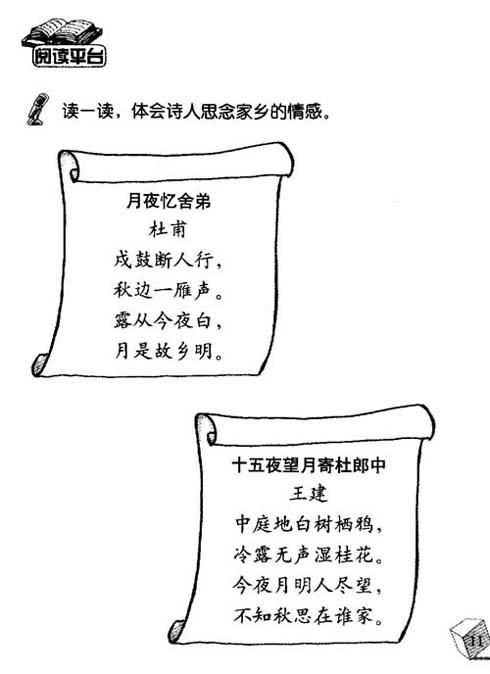 阅读平台
读一读，体会诗人思念家乡的情感。
月夜忆舍弟
杜甫
戍鼓断人行，
秋边一雁声。
露从今夜白，
月是故乡明。
十五夜望月寄杜郎中
王建
中庭地白树栖鸦，
冷露无声湿桂花。
今夜月明人尽望，
不知秋思在谁家。
11